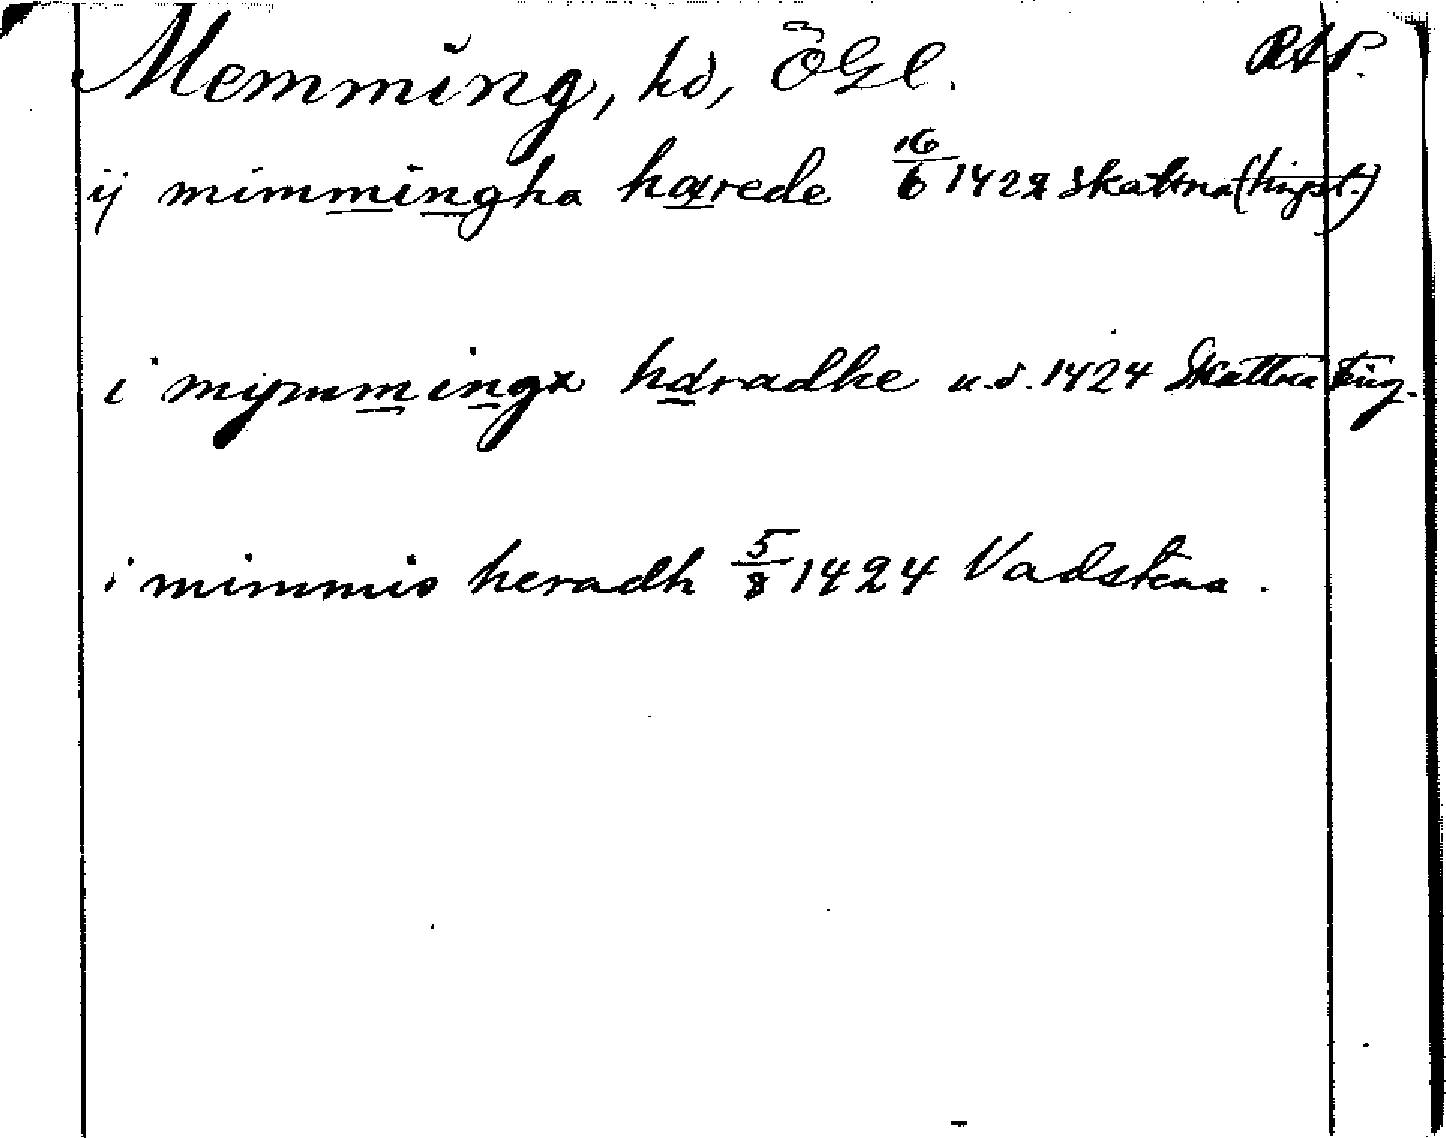 Memming, hd, ÖGl. RAP.
ij mimmingha hærede 16/6 1422 Skattna (tingst.)
i mymmingx hæradhe u.d. 1424 Skattna ting.
i mimmis heradh 5/8 1424 Vadstena.